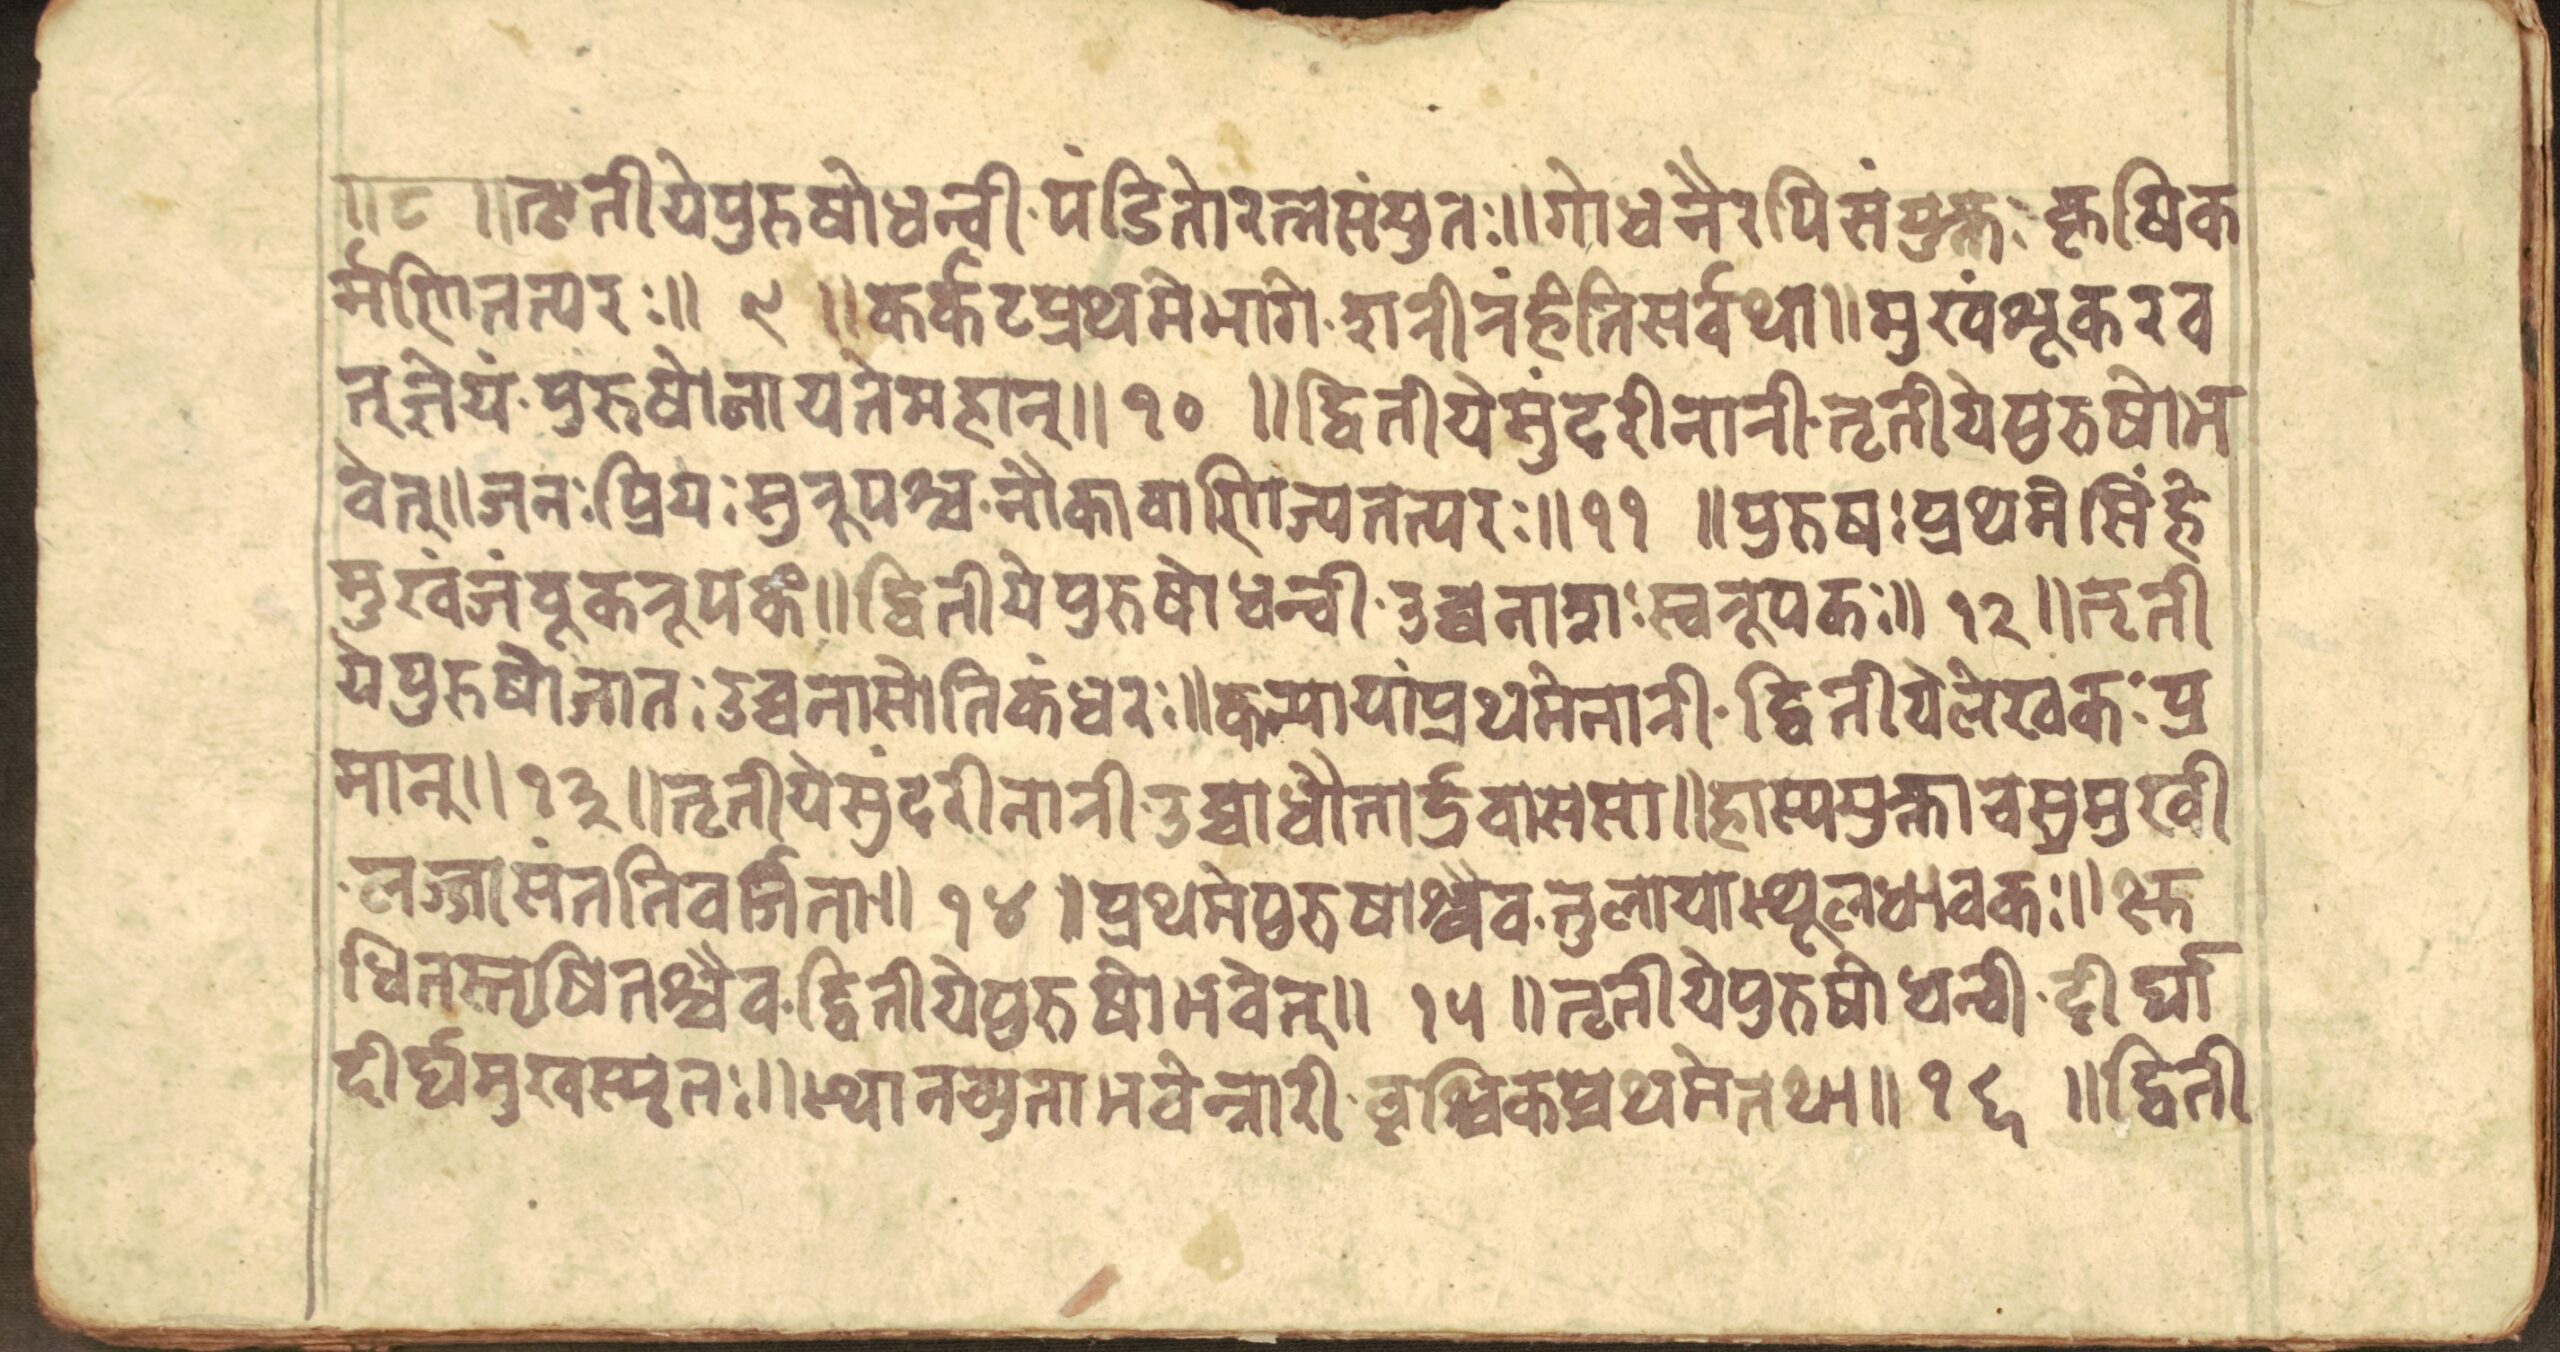 ॥८ ॥तृतीयेपुरुषोधन्वी·पंडितोरत्नसंयुतः॥गोधनैरपिसंयुक्तः कृषिक
र्मणितत्परः॥ ९ ॥कर्कटप्रथमेभागे·शनीनंहंतिसर्वथा॥मुखंशूकरव
त्ज्ञेयं·पुरूषोजायतेमहान्॥१० ॥द्वितीयेसुंदरीनानी·तृतीयेपुरुषोभ
वेत्॥जनःप्रियःसुनूपश्च·नौकावाणिज्यतत्परः॥११ ॥पुरुषःप्रथमेसिंहे
मुखंजंवूकनूपकं॥द्वितीयेपुरुषोधन्वी·उच्चनाशःस्वनूपकः॥१२॥तृती
येपुरुषोजातःउच्चनासोतिकंधरः॥कन्यायांप्रथमेनानी·द्वितीयेलेखकःपु
मान्॥१३॥तृतीयेसुंदरीनानी·उच्चाधौतार्द्रवाससा॥हास्ययुक्ताचसुमुखी
·लज्जासंततिवर्जिता॥ १४ ॥प्रथमेपुरुषाश्चैव·तुलायास्थूलधावकः॥क्षु
धितस्तृषितश्चैव·द्वितीयेपुरुषोभवेत्॥ १५ ॥तृतीयेपुरुषोधन्वी·दीर्घा
दीर्घमुखस्मृतः॥स्थानच्युताभवेन्नारी·वृश्चिकप्रथमेतथा॥१६ ॥द्विती